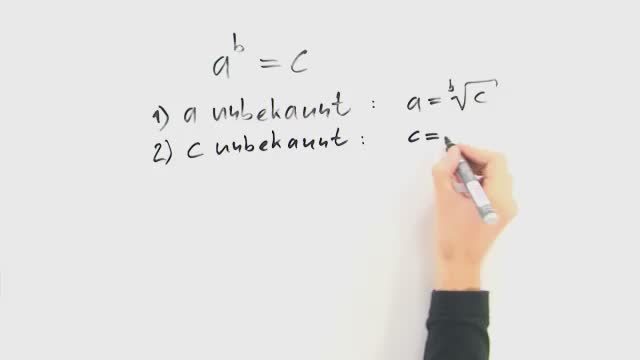 a^b = c
1) a unbekannt : a = ᵇ√c
2) c unbekannt : c =